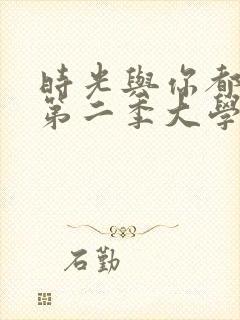 時光與你都
第二季大學
石勤